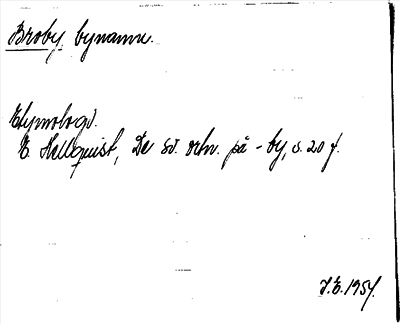 Broby, bynamn.
Etymologi.
E. Hellquist, De sv. ortn. på -by, s. 20 f.
J.E. 1954.